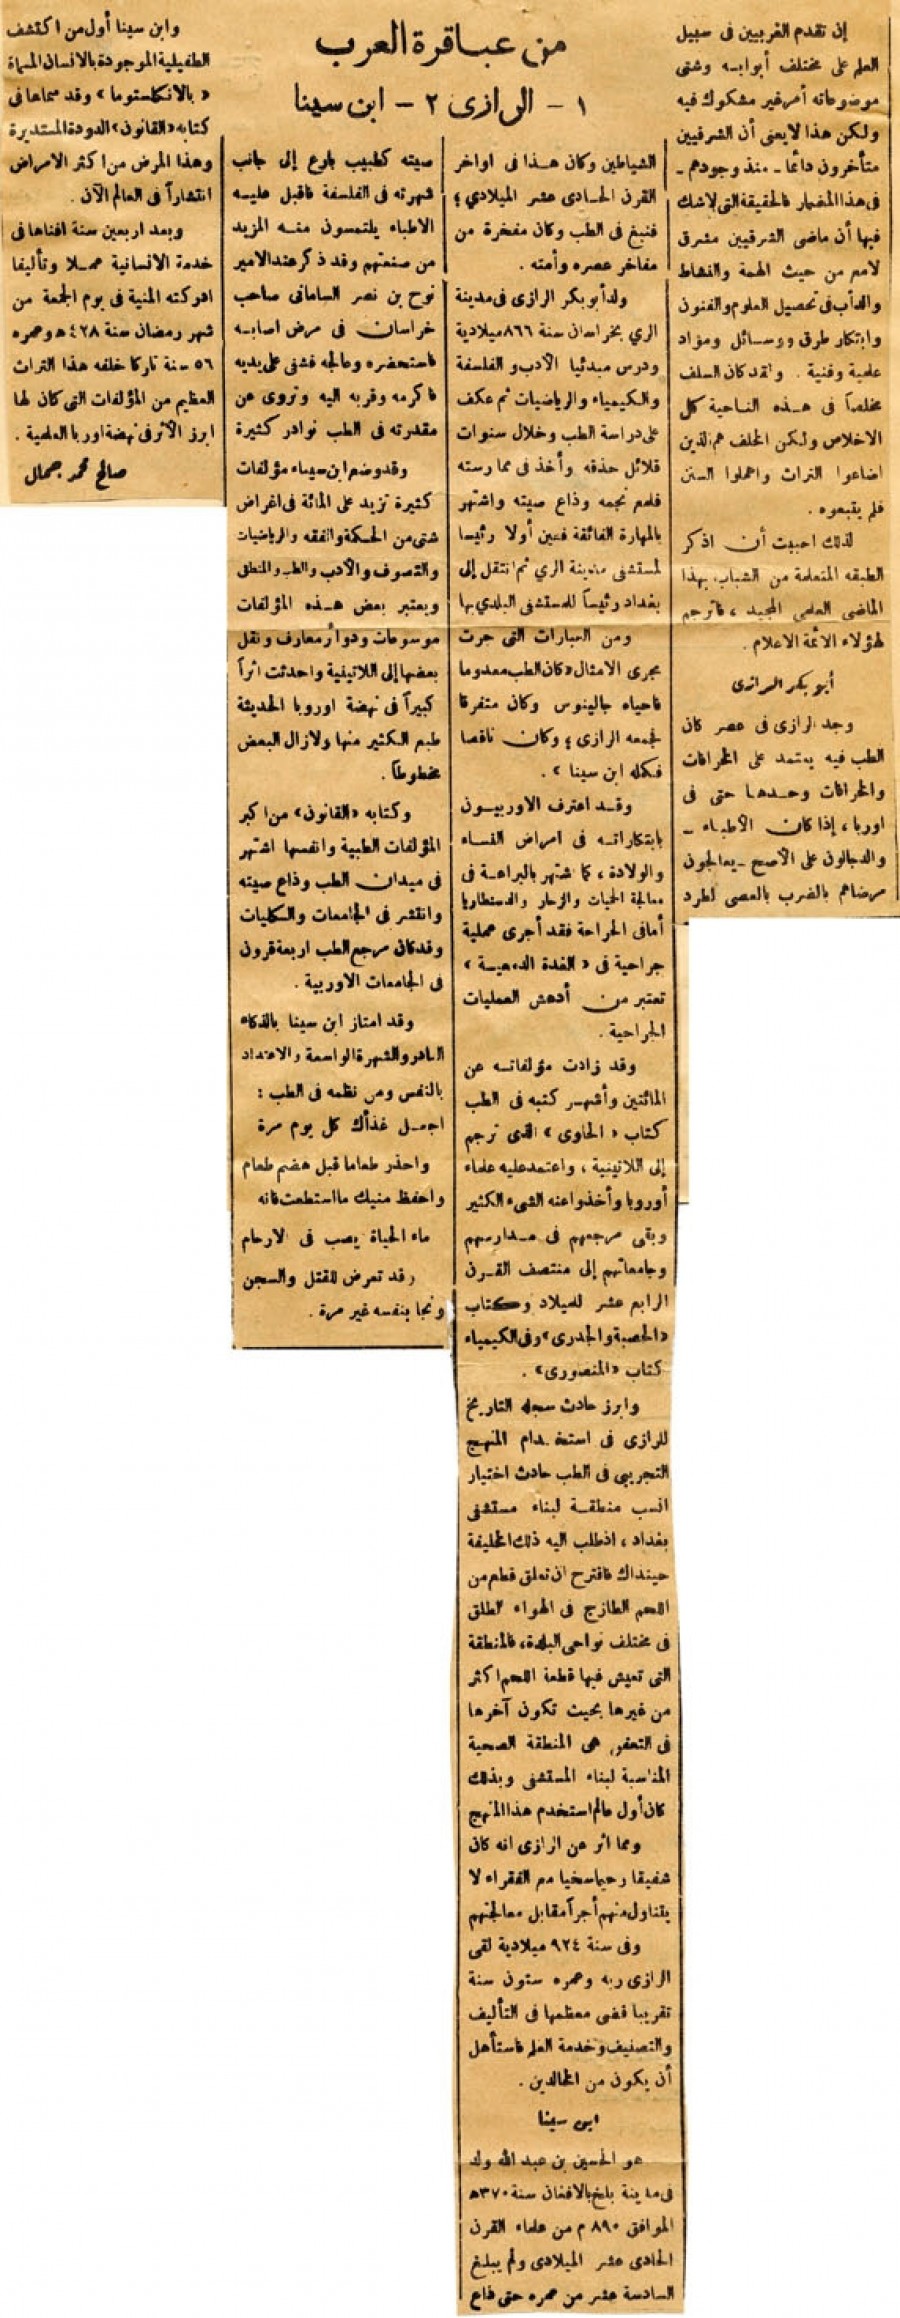 من عباقرة العرب
١ - الرازى ٢ - ابن سينا
إن تقدم الغربيين فى سبيل
العلم على مختلف أبوابه وشتى
موضوعاته أمر غير مشكوك فيه
ولكن هذا لا يعنى أن الشرقيين
متأخرون دائماً - منذ وجودهم -
فى هذا المضمار فالحقيقة التى لاشك
فيها أن ماضى الشرقيين مشرق
لامع من حيث الهمة والنشاط
والدأب فى تحصيل العلوم والفنون
وابتكار طرق ووسائل ومواد
علمية وفنية . ولقد كان السلف
مخلصاً فى هذه الناحية كل
الاخلاص ولكن الخلف هم الذين
اضاعوا التراث واهملوا السنن
فلم يتبعوه .
لذلك احببت أن اذكر
الطبقه المتعلمة من الشباب بهذا
الماضى العلمى المجيد ، فاترجم
لهؤلاء الائمة الاعلام .
أبو بكر الرازى
وجد الرازى فى عصر كان
الطب فيه يعتمد على الخرافات
والخرافات وحدها حتى فى
اوربا ، إذا كان الأطباء -
والدجالون على الأصح - يعالجون
مرضاهم بالضرب بالعصى لطرد
الشياطين وكان هذا فى اواخر
القرن الحادى عشر الميلادي ؛
فنبغ فى الطب وكان مفخرة من
مفاخر عصره وأمته .
ولد أبو بكر الرازى فى مدينة
الري بخراسان سنة ٨٦٦ ميلادية
ودرس مبدئيا الأدب والفلسفة
والكيمياء والرياضيات ثم عكف
على دراسة الطب وخلال سنوات
قلائل حذقه وأخذ فى ممارسته
فلمع نجمه وذاع صيته واشتهر
بالمهارة الفائقة فعين أولا رئيسا
لمستشفى مدينة الري ثم انتقل إلى
بغداد رئيساً للمستشفى البلدي بها
ومن العبارات التى جرت
مجرى الامثال «كان الطب معدوما
فاحياه جالينوس وكان متفرقا
فجمعه الرازى ؛ وكان ناقصا
فكمله ابن سينا » .
وقد اعترف الاوربيون
بابتكاراته فى امراض النساء
والولادة ، كما شتهر بالبراعة فى
معالجة الحيات والزحار والدسنطاريا
أما فى الجراحة فقد أجرى عملية
جراحية فى « الغدة الدمعية »
تعتبر من أدهش العمليات
الجراحية .
وقد زادت مؤلفاته عن
المائتين وأشهر كتبه فى الطب
كتاب « الحاوى » الذى ترجم
إلى اللاتينية ، واعتمد عليه علماء
أوروبا وأخذوا عنه الشىء الكثير
وبقى مرجعهم فى مدارسهم
وجامعاتهم إلى منتصف القرن
الرابع عشر للميلاد وكتاب
«الحصبة والجدرى» وفى الكيمياء
كتاب «المنصورى» .
وابرز حادث سجله التاريخ
للرازى فى استخدام المنهج
التجريبى فى الطب حادث اختيار
انسب منطقة لبناء مستشفى
بغداد ، اذ طلب اليه ذلك الخليفة
حينذاك فاقترح ان تعلق قطع من
اللحم الطازج فى الهواء الطلق
فى مختلف نواحى البلدة ، فالمنطقة
التى تعيش فيها قطعة اللحم اكثر
من غيرها بحيث تكون آخرها
فى التعفن هى المنطقة الصحية
المناسبة لبناء المستشفى وبذلك
كان أول عالم استخدم هذا المنهج
ومما اثر عن الرازى انه كان
شفيقا رحيما سخيا مع الفقراء لا
يتناول منهم أجراً مقابل معالجتهم
وفى سنة ٩٢٤ ميلادية لقى
الرازى ربه وعمره ستون سنة
تقريبا قضى معظمها فى التأليف
والتصنيف وخدمة العلم فاستأهل
أن يكون من الخالدين .
ابن سينا
هو الحسين بن عبد الله ولد
فى مدينة بلخ بالافغان سنة ٣٧٠ هـ
الموافق ٨٩٠ م من علماء القرن
الحادى عشر الميلادى ولم يبلغ
السادسة عشر من عمره حتى ذاع
صيته كطبيب بارع إلى جانب
شهرته فى الفلسفة فاقبل عليه
الاطباء يلتمسون منه المزيد
من صنعتهم وقد ذكر عند الامير
نوح بن نصر السامانى صاحب
خراسان فى مرض اصابه
فاستحضره وعالجه فشفى على يديه
فاكرمه وقربه اليه وتروى عن
مقدرته فى الطب نوادر كثيرة
وقد وضع ابن سيناء مؤلفات
كثيرة تزيد على المائة فى اغراض
شتى من الحكمة والفقه والرياضيات
والتصوف والأدب والطب والمنطق
ويعتبر بعض هذه المؤلفات
موسوعات ودوائر معارف ونقل
بعضها إلى اللاتينية واحدثت اثراً
كبيراً فى نهضة اوروبا الحديثة
طبع الكثير منها ولازال البعض
مخطوطاً .
وكتابه «القانون» من اكبر
المؤلفات الطبية وانفسها اشتهر
فى ميدان الطب وذاع صيته
وانتشر فى الجامعات والكليات
وقد كان مرجع الطب اربعة قرون
فى الجامعات الاوربية .
وقد امتاز ابن سينا بالذكاء
النادر والشهرة الواسعة والاعتداد
بالنفس ومن نظمه فى الطب :
اجعل غذاءك كل يوم مرة
واحذر طعاما قبل هضم طعام
واحفظ منيك ما استطعت فانه
ماء الحياة يصب فى الارحام
وقد تعرض للقتل والسجن
ونجا بنفسه غير مرة .
وابن سينا أول من اكتشف
الطفيلية الموجودة بالانسان المسماة
«بالانكلستوما» وقد سماها فى
كتابه «القانون» الدودة المستديرة
وهذا المرض من اكثر الامراض
انتشاراً فى العالم الآن .
وبعد اربعين سنة افناها فى
خدمة الانسانية عملا وتأليفا
ادركته المنية فى يوم الجمعة من
شهر رمضان سنة ٤٢٨ هـ وعمره
٥٦ سنة تاركا خلفه هذا التراث
العظيم من المؤلفات التى كان لها
ابرز الأثر فى نهضة اوربا العلمية .
صالح محمد جمال